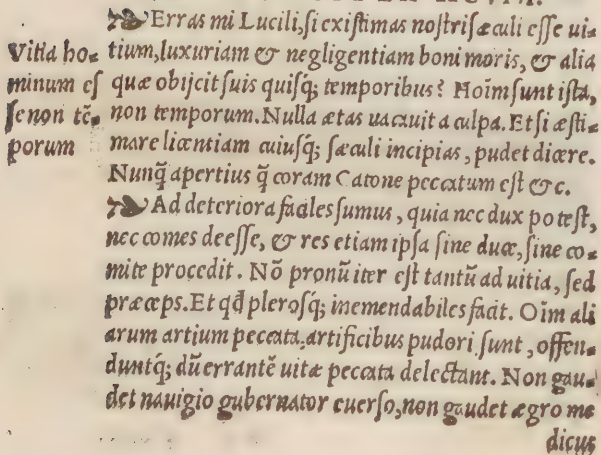 ❧ Erras mi Lucili, ſi exiſtimas noſtri ſæculi eſſe ui⸗
tium, luxuriam & negligentiam boni moris, & alia
quæ obijcit ſuis quiſq; temporibus? Hoīm ſunt iſta,
non temporum. Nulla ætas uacauit a culpa. Et ſi æſti⸗
mare licentiam cuiuſq; ſæculi incipias, pudet dicere.
Nunq̃ apertius q̃ coram Catone peccatum eſt &c.
Vitia ho⸗
minum eſ
ſe non tē⸗
porum
❧ Ad deteriora faciles ſumus, quia nec dux poteſt,
nec comes deeſſe, & res etiam ipſa ſine duce, ſine co⸗
mite procedit. Nō pronū iter eſt tantū ad uitia, ſed
præceps. Et qď pleroſq; inemendabiles facit. Oīm ali
arum artium peccata, artificibus pudori ſunt, offen⸗
duntq; dū errantē uitæ peccata delectant. Non gau⸗
det nauigio gubernator euerſo, non gaudet ægro me
dicus